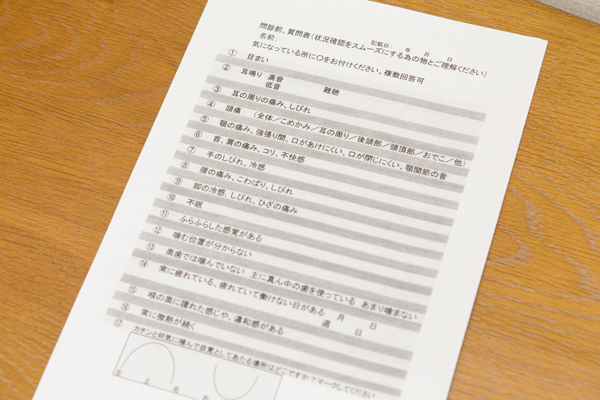 問診前、質問表(状況確認をスムーズにする為の物とご理解ください)
記載日: 年 月 日
名前:
気になっている所に〇をお付けください。複数回答可
① 目まい
② 耳鳴り 高音
低音 難聴
③ 耳の周りの痛み、しびれ
④ 頭痛 (全体/こめかみ/耳の周り/後頭部/頭頂部/おでこ/他)
⑤ 顎の痛み、強張り間、口があけにくい、口が閉じにくい、顎関節の音
⑥ 首、肩の痛み、コリ、不快感
⑦ 手のしびれ、冷感
⑧ 腰の痛み、こわばり、しびれ
⑨ 脚の冷感、しびれ、ひざの痛み
⑩ 不眠
⑪ ふらふらした感覚がある
⑫ 噛む位置が分からない
⑬ 奥歯では噛んでいない 主に真ん中の歯を使っている あまり噛まない
⑭ 常に疲れている、疲れていて働けない日がある 月 日
週 日
⑮ 喉の奥に腫れた感じや、違和感がある
⑯ 常に微熱が続く
⑰ カチンと何気に噛んで自覚としてあたる場所はどこですか?マークしてください
左 上 右 右